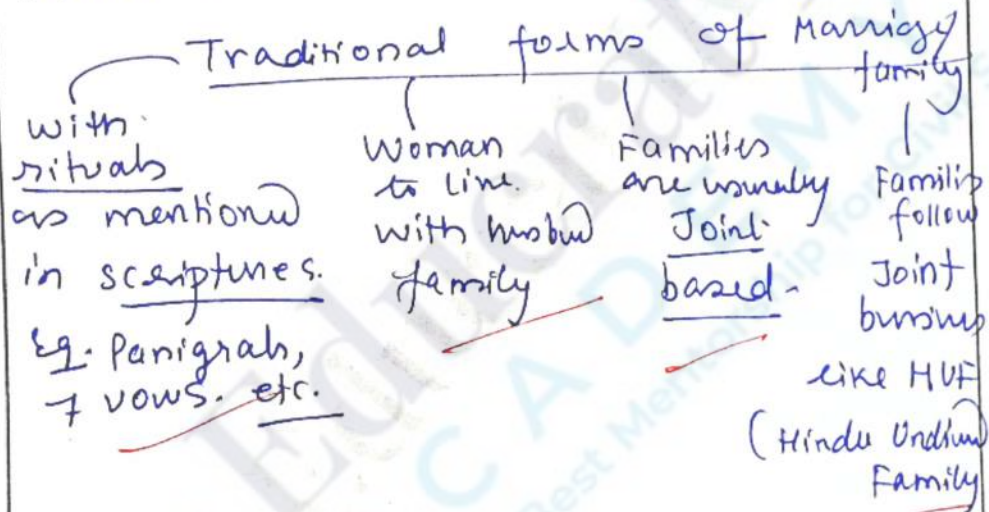 Traditional forms of Marriage
family
with
rituals
as mentioned
in scriptures.
Eg. Panigrah,
7 vows. etc.
Woman
to live
with husband
family
Families
are usually
Joint
based.
Families
follow
Joint
business
like HUF
(Hindu Undivided
Family